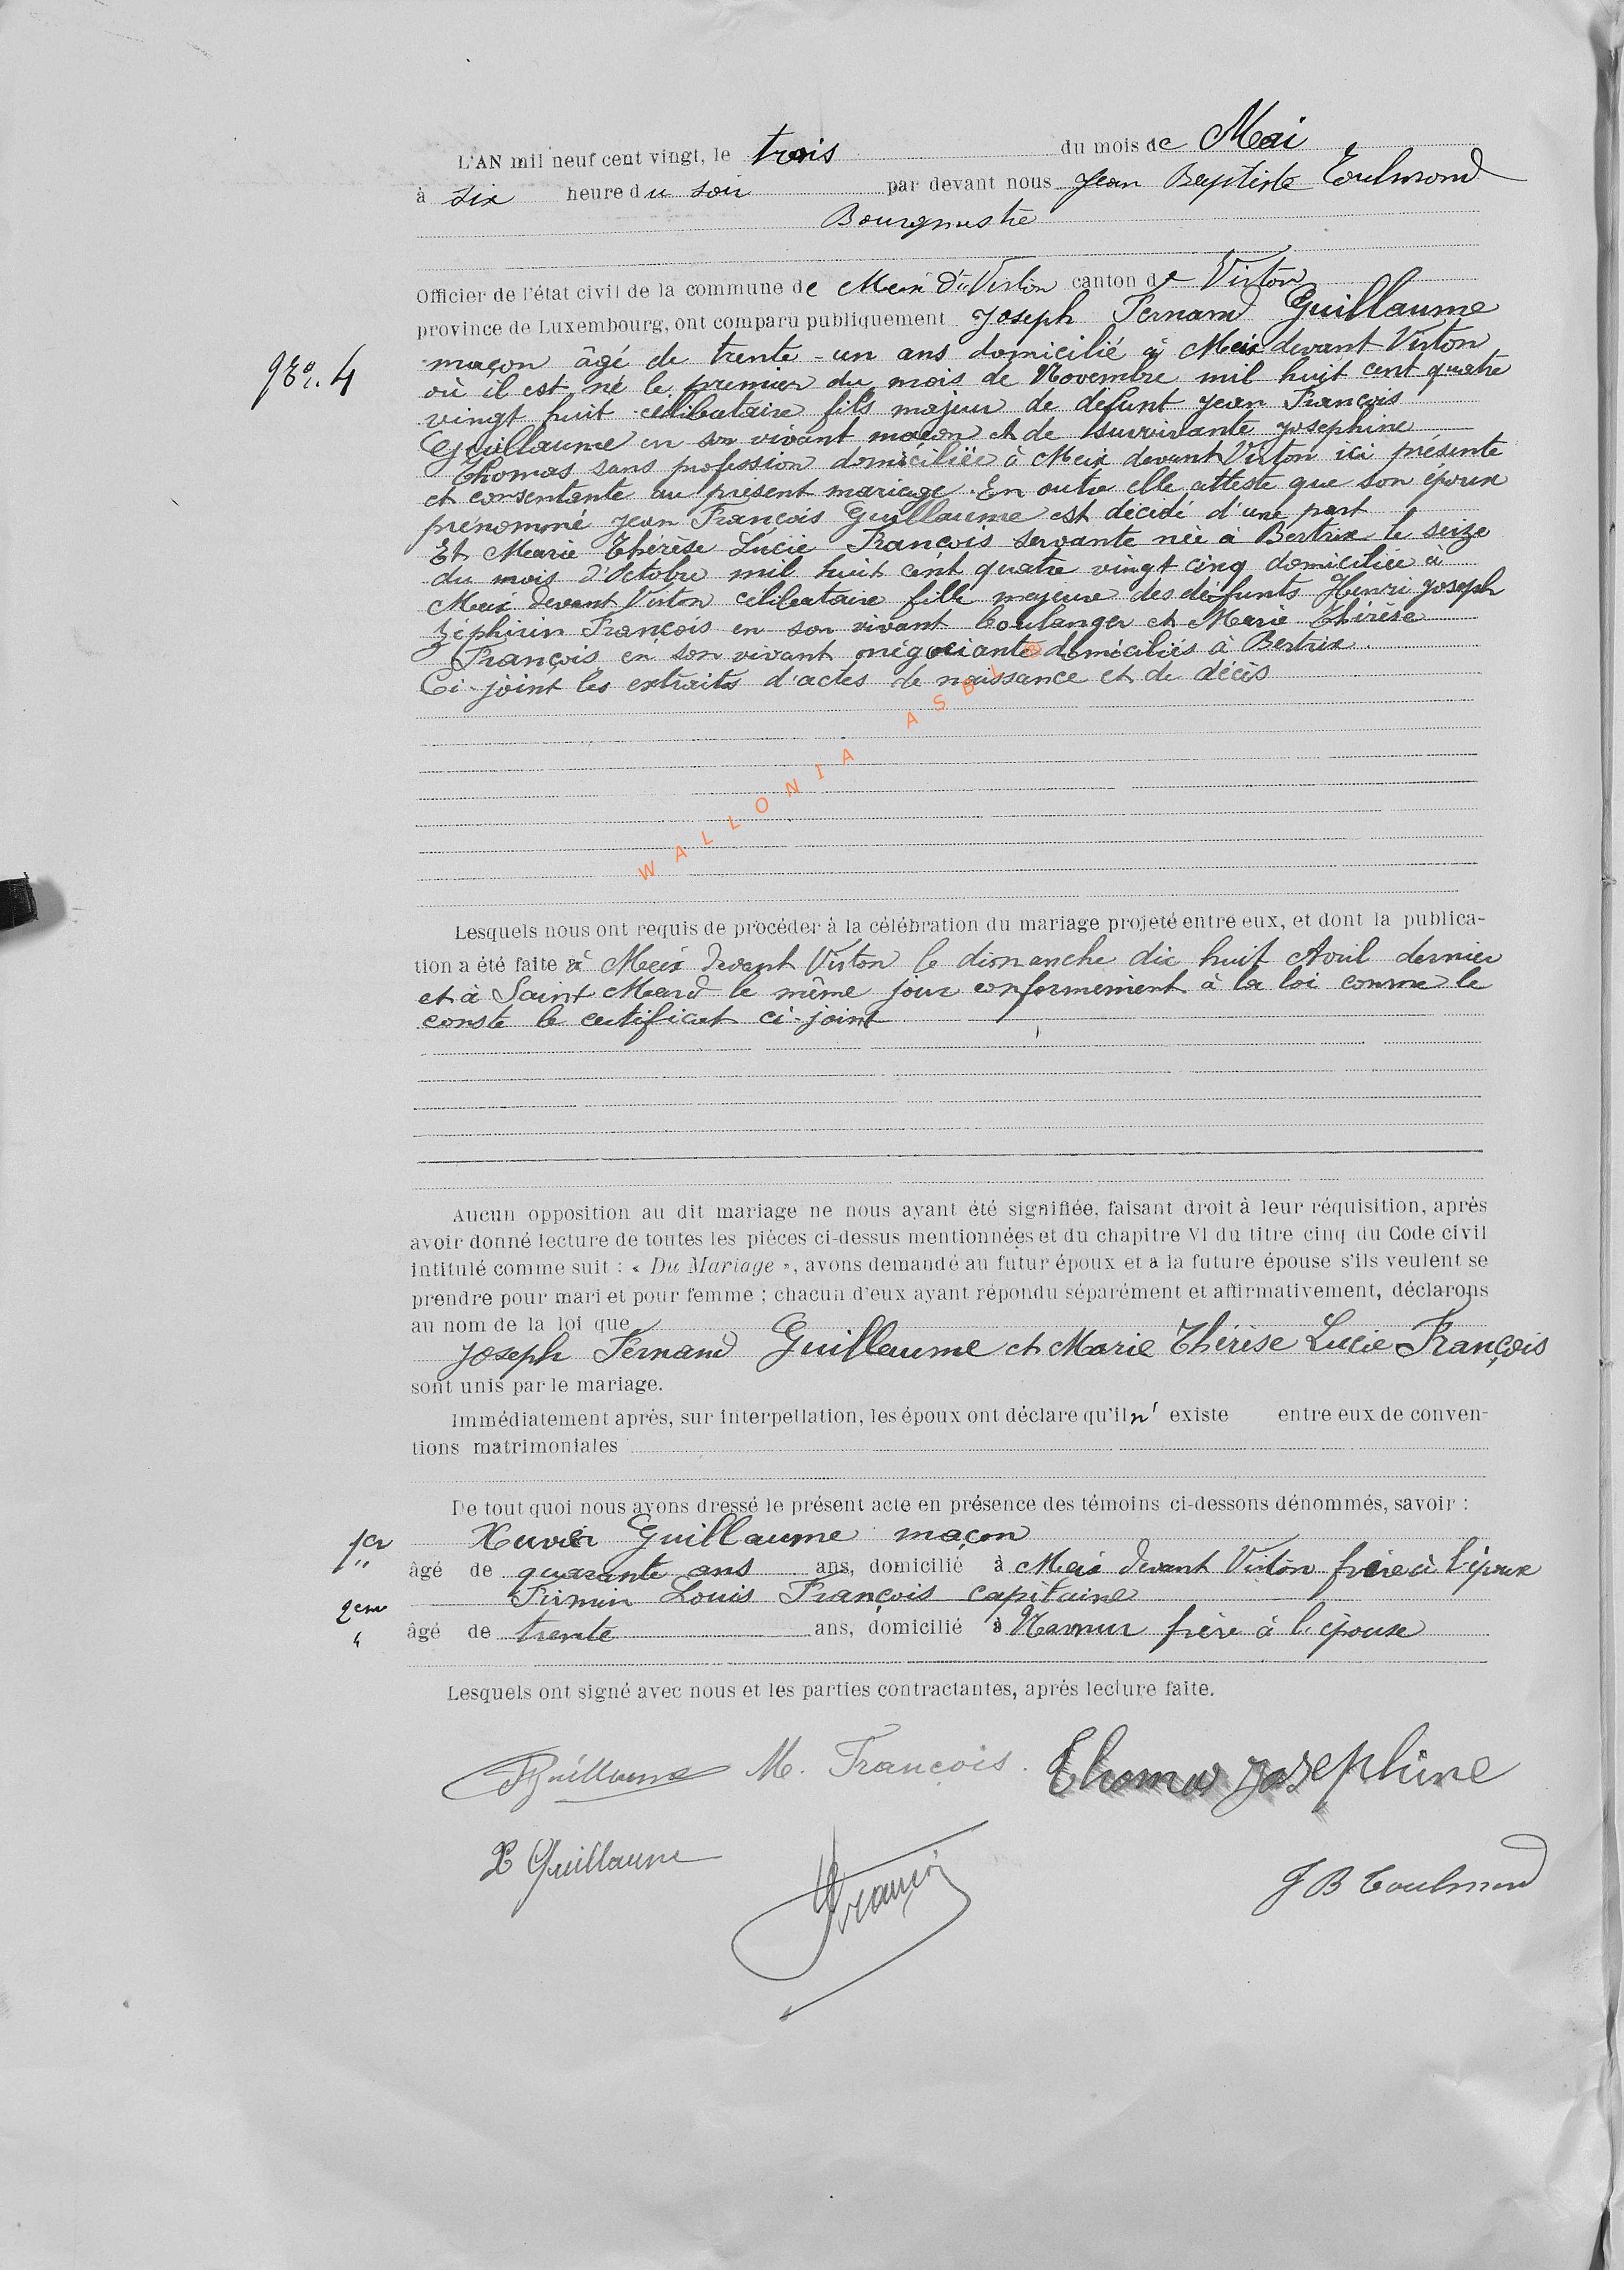 L'AN mil neuf cent vingt, le trois du mois de Mai
à six heure du soir par devant nous Jean Baptiste Toulmond
Bourgmestre
Officier de l'état civil de la commune de Meix dt Virton canton de Virton
province de Luxembourg, ont comparu publiquement Joseph Fernand Guillaume
No. 4
maçon âgé de trente-un ans domicilié à Meix devant Virton
où il est né le premier du mois de Novembre mil huit cent quatre
vingt huit célibataire fils majeur de defunt Jean François
Guillaume en son vivant maçon et de survivante Josephine
Thomas sans profession domiciliée à Meix devant Virton ici présente
et consentante au présent mariage. En outre elle atteste que son époux
prenommé Jean François Guillaume est décidé d'une part
Et Marie Thérèse Lucie François servante née à Bertrix le seize
du mois d'Octobre mil huit cent quatre vingt cinq domiciliée à
Meix devant Virton célibataire fille majeure des défunts Henri Joseph
Zéphirin François en son vivant boulanger et Marie Thérèse
François en son vivant négociante domiciliés à Bertrix.
Ci-joint les extraits d'actes de naissance et de décès
WALLONIA ASBL ®
Lesquels nous ont requis de procéder à la célébration du mariage projeté entre eux, et dont la publica-
tion a été faite à Meix devant Virton le dimanche dix huit Avril dernier
et à Saint Mard le même jour conformément à la loi comme le
conste le certificat ci-joint
Aucun opposition au dit mariage ne nous ayant été signifiée, faisant droit à leur réquisition, après
avoir donné lecture de toutes les pièces ci-dessus mentionnées et du chapitre VI du titre cinq du Code civil
intitulé comme suit : « Du Mariage », avons demandé au futur époux et a la future épouse s'ils veulent se
prendre pour mari et pour femme ; chacun d'eux ayant répondu séparément et affirmativement, déclarons
au nom de la loi que
Joseph Fernand Guillaume et Marie Thérèse Lucie François
sont unis par le mariage.
Immédiatement après, sur interpellation, les époux ont déclare qu'il n' existe entre eux de conven-
tions matrimoniales
De tout quoi nous avons dressé le présent acte en présence des témoins ci-dessons dénommés, savoir :
1er Xavier Guillaume maçon
âgé de quarante ans ans, domicilié à Meix devant Virton frère à l'époux
2em Firmin Louis François capitaine
âgé de trente ans, domicilié à Namur frère à l'épouse
Lesquels ont signé avec nous et les parties contractantes, après lecture faite.
JGuillaume M. François. Thomas Josephine
X Guillaume
François
J B Toulmond